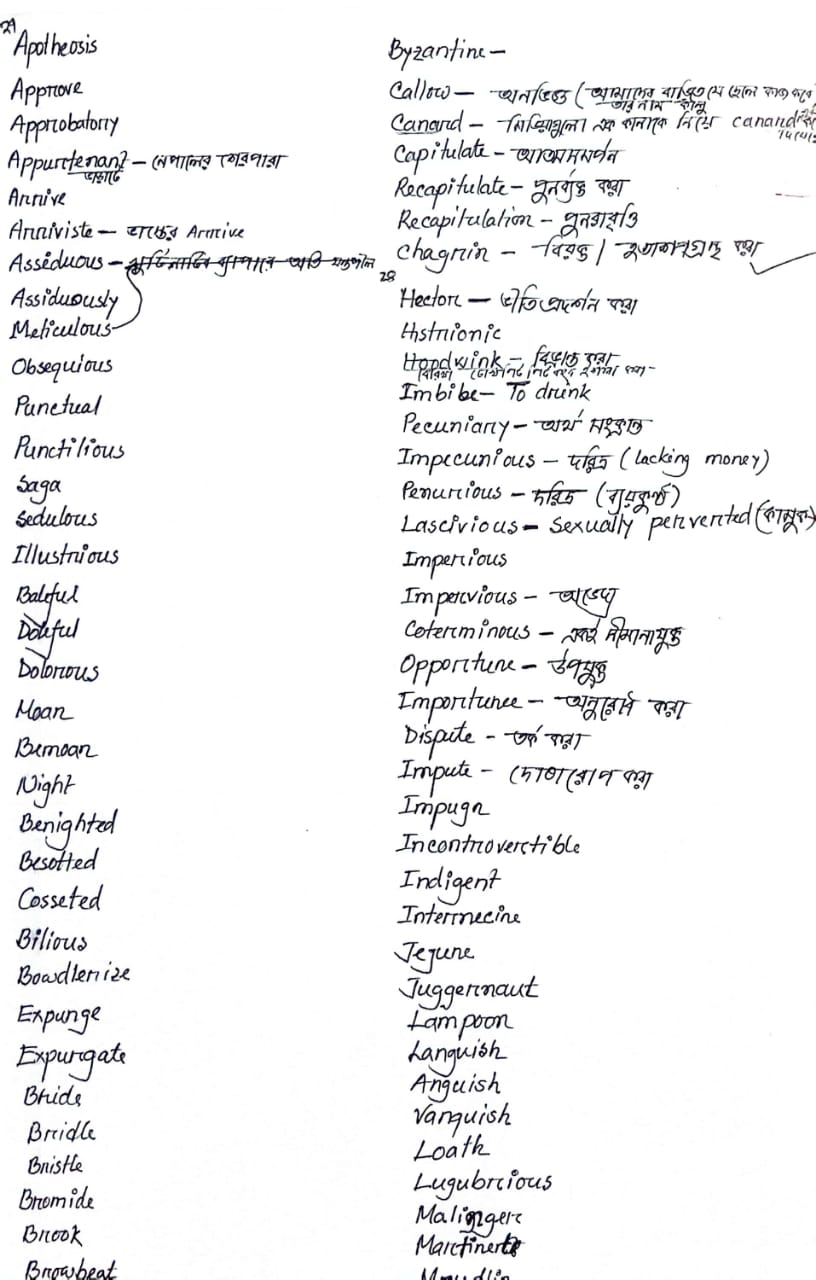 27
Apotheosis
Approve
Approbatory
Appurtenant – নেপালের শেরপারা
Arrive
Arriviste – Arrive
Asséduous –
Assiduously
Meticulous
Obsequious
Punctual
Punctilious
Saga
Sedulous
Illustrious
Baleful
Doleful
Dolorous
Moan
Bemoan
Night
Benighted
Besotted
Cosseted
Bilious
Bowdlerize
Expunge
Expurgate
Bride
Bridle
Bristle
Bromide
Brook
Browbeat
Byzantine –
Callow – অনভিজ্ঞ (আমাদের বাড়িতে যে ছেলে কাজ করে
তার নাম কালু
Canard – মিডিয়াগুলো এক কানাকে নিয়ে canard
Capitulate – আত্মসমর্পন
Recapitulate – পুনর্ব্যক্ত করা
Recapitulation – পুনরাবৃত্তি
Chagrin – বিরক্ত / হতাশাগ্রস্থ করা
28
Hector – ভীতি প্রদর্শন করা
Histrionic
Hoodwink – বিভ্রান্ত করা
Imbibe – To drink
Pecuniary – অর্থ সংক্রান্ত
Impecunious – দরিদ্র (lacking money)
Penurious – দরিদ্র (ব্যয়কুণ্ঠ)
Lascivious – Sexually perverted (কামুক)
Imperious
Impervious – অভেদ্য
Coterminous – একই সীমানাযুক্ত
Opportune – উপযুক্ত
Importunee – অনুরোধ করা
Dispute – তর্ক করা
Impute – দোষারোপ করা
Impugn
Incontrovertible
Indigent
Internecine
Jejune
Juggernaut
Lampoon
Languish
Anguish
Vanquish
Loath
Lugubrious
Malinger
Martinet
Maudlin